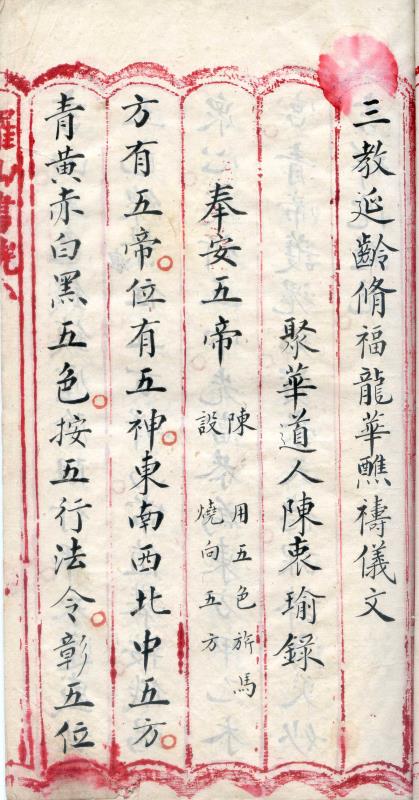 三教延齡脩福龍華醮禱儀文
聚華道人陳衷瑜錄
奉安五帝
陳 用五色旂馬
設 燒向五方
方有五帝。位有五神。東南西北中五方。
青黃赤白黑五色。按五行法令。彰五位